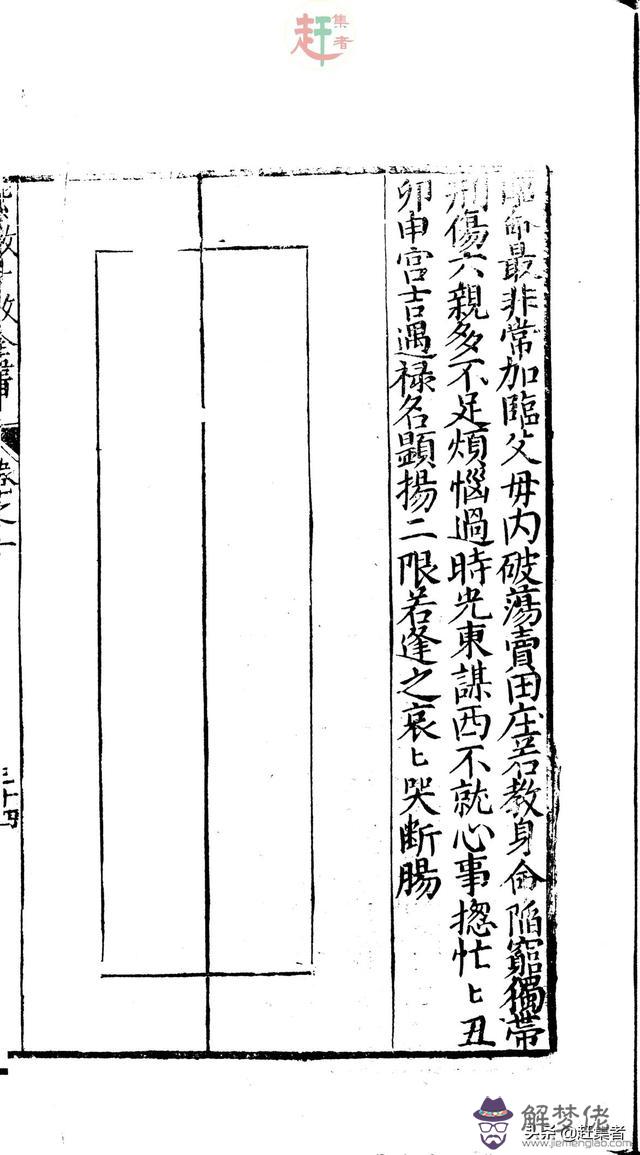 赶集者
最非常加臨父母內破蕩賣田庄若教身命陷窮獨帶
刑傷六親多不足煩惱過時光東謀西不就心事揔忙〻丑
卯申宮吉遇禄名顯揚二限若逢之哀〻哭断腸
卷之一
三十四
解梦佬
www.jiemenglao.com
头条@赶集者